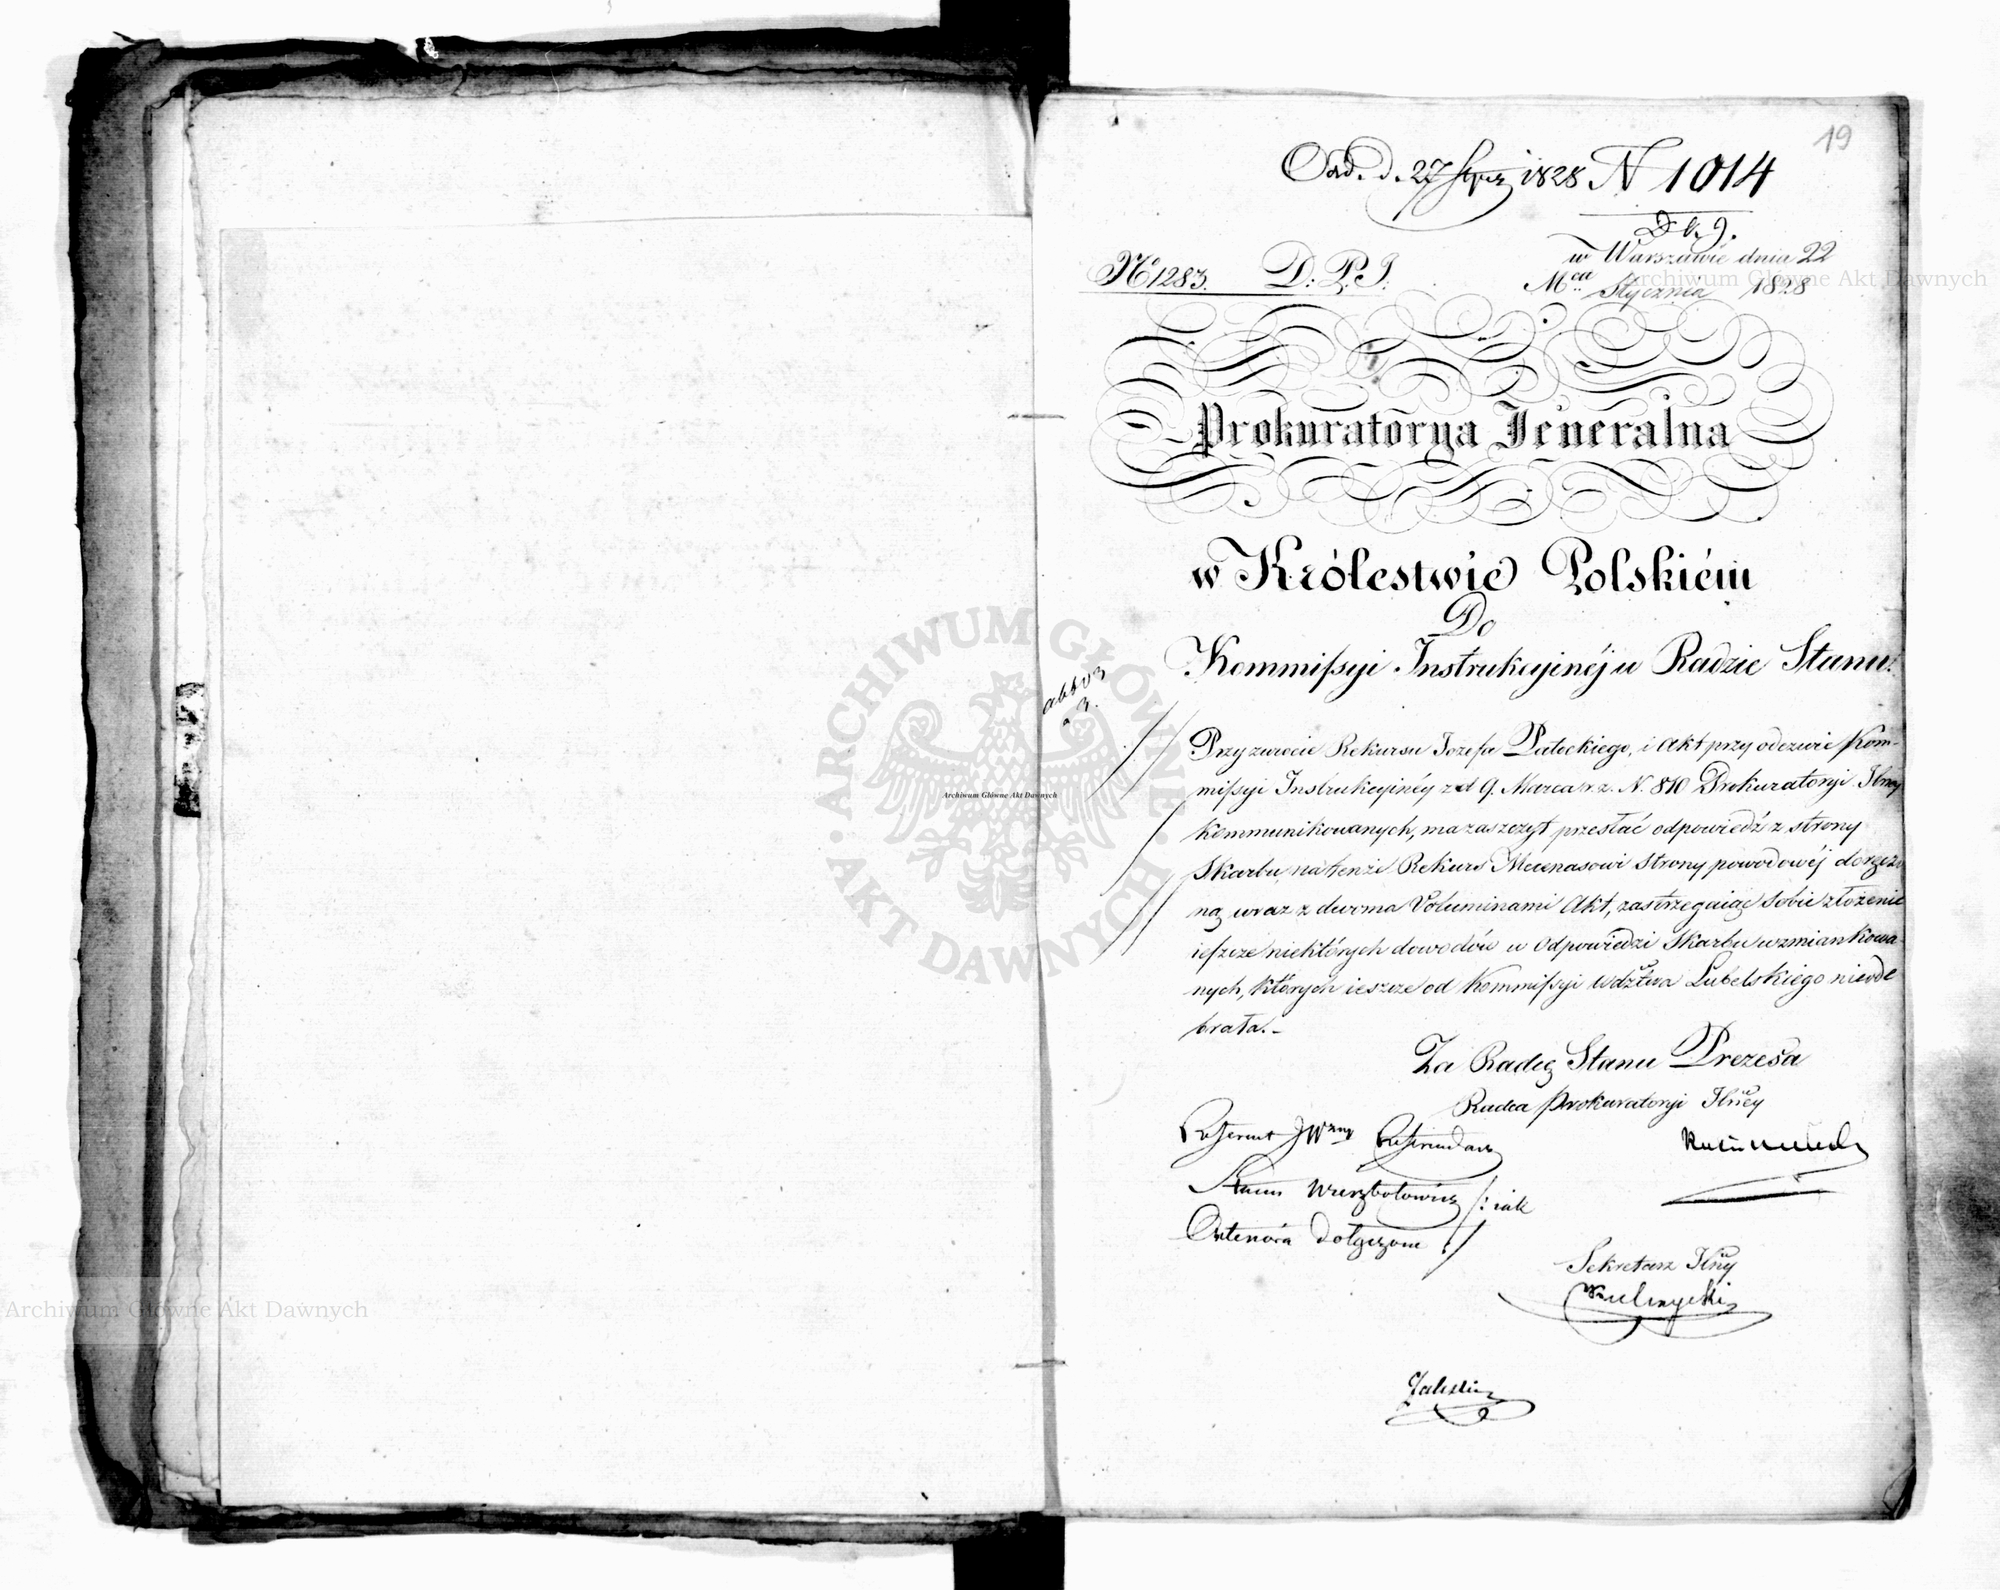 19
Odd. d. 27 Stycz 1828 N 1014
D b. 9.
w Warszawie dnia 22
Nº 1283. D: P. J.
Mca Stycznia 1828
Prokuratorya Jeneralna
w Królestwie Polskiém
Do
Kommissyi Instrukcyinéj w Radzie Stanu.
Przy zwrocie Rekursu Jozefa Pałeckiego, i Akt przy odezwie Kom-
missyi Instrukcyinéy z d 9. Marca r. z. N. 810 Prokuratoryi Jlney
kommunikowanych, ma zaszczyt przesłać odpowiedź z strony
Skarbu na tenże Rekurs Mecenasowi strony powodowéj doręczo
ną wraz z dwoma Voluminami Akt, zastrzegaiąc sobie złożenie
ieszcze niektórych dowodów w Odpowiedzi Skarbu wzmiankowa-
nych, których ieszcze od Kommissyi Wdztwa Lubelskiego nieode
brała. –
Za Radcę Stanu Prezesa
Radca Prokuratoryi Jlney
Referent JWzny Referendarz
Stanu Wierzbołowicz /: iak
Antenóra dołączone :/
Sekretarz Jlny
Kulczycki
Zaleski
Archiwum Główne Akt Dawnych
ARCHIWUM GŁÓWNE AKT DAWNYCH
Archiwum Główne Akt Dawnych
Archiwum Główne Akt Dawnych